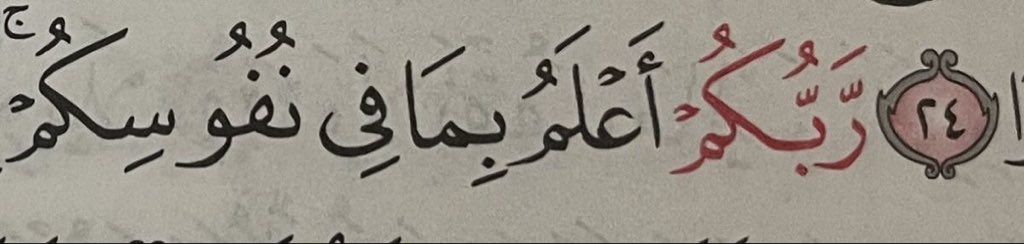 ا ٢٤ رَّبُّكُمْ أَعْلَمُ بِمَا فِي نُفُوسِكُمْ ۚ